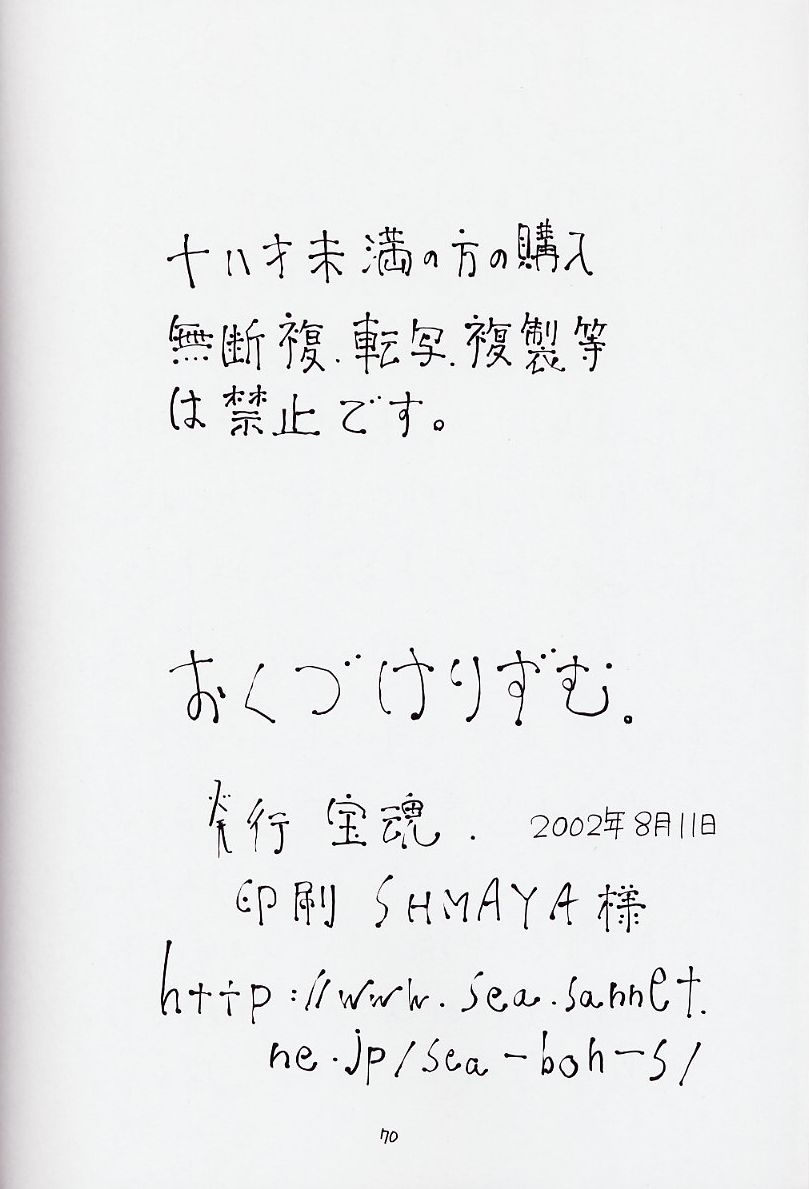 十八才未満の方の購入
無断複.転写.複製等
は禁止です。
おくづけりずむ。
発行 宝魂. 2002年8月11日
印刷 SHMAYA様
http://www.sea.sannet.
ne.jp/sea-boh-s/
70